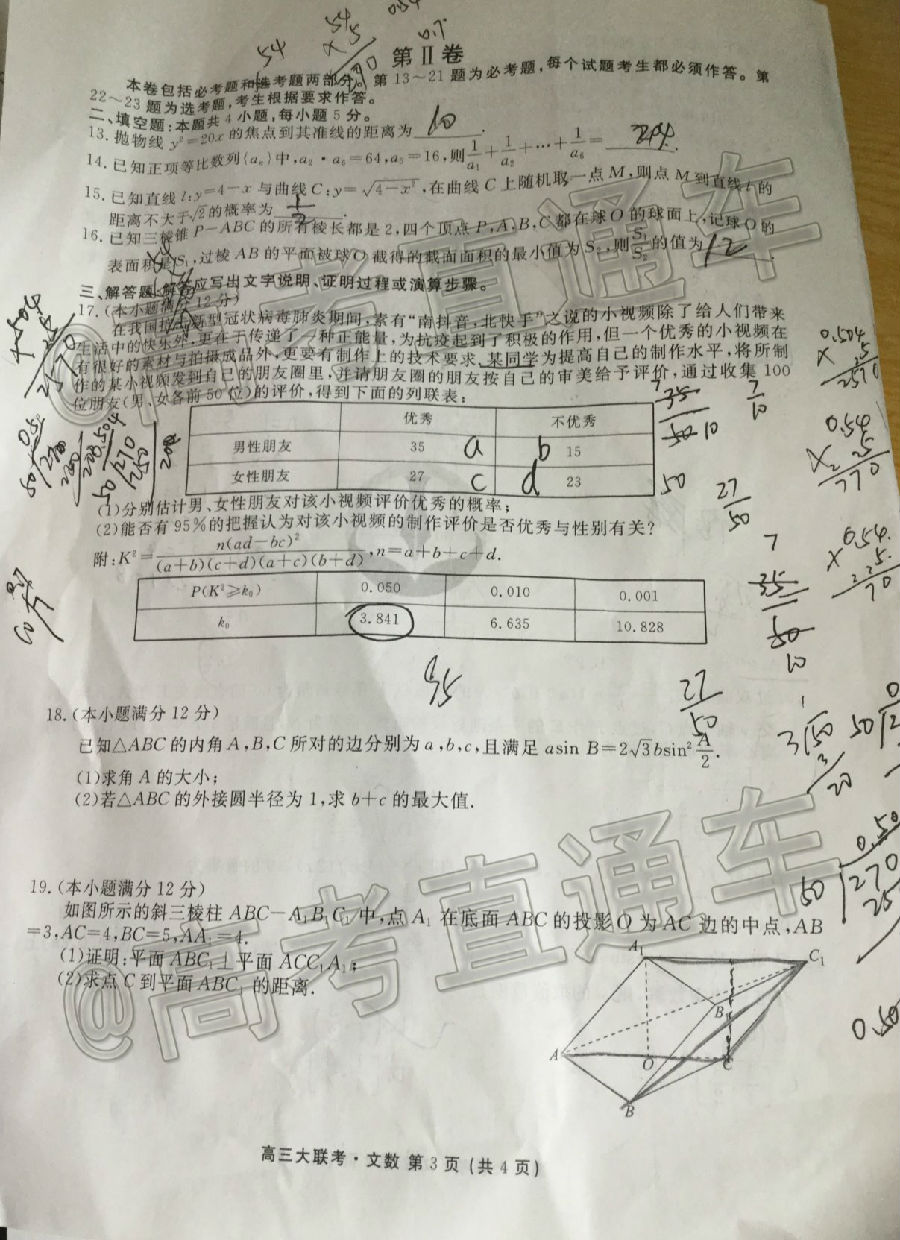 第Ⅱ卷
本卷包括必考题和选考题两部分。第13～21题为必考题,每个试题考生都必须作答。第
22～23题为选考题,考生根据要求作答。
二、填空题:本题共4小题,每小题5分。
13.抛物线 y²=20x 的焦点到其准线的距离为 10 .
14.已知正项等比数列{aₙ}中,a₂·a₆=64,a₅=16,则1/a₁+1/a₂+…+1/a₆=
15.已知直线l:y=4-x 与曲线C:y=√(4-x²),在曲线C上随机取一点M,则点M到直线l的
距离不大于√2的概率为 1/2 .
16.已知三棱锥P-ABC的所有棱长都是2,四个顶点P,A,B,C都在球O的球面上,记球O的
表面积是S₁,过棱AB的平面被球O截得的截面面积的最小值为S₂,则S₁/S₂的值为 12 .
三、解答题:解答应写出文字说明、证明过程或演算步骤。
17.(本小题满分12分)
在我国抗击新型冠状病毒肺炎期间,素有“南抖音,北快手”之说的小视频除了给人们带来
生活中的快乐外,更在于传递了一种正能量,为抗疫起到了积极的作用,但一个优秀的小视频在
有很好的素材与拍摄成品外,更要有制作上的技术要求.某同学为提高自己的制作水平,将所制
作的某小视频发到自己的朋友圈里,并请朋友圈的朋友按自己的审美给予评价,通过收集100
位朋友(男、女各前50位)的评价,得到下面的列联表:
优秀 不优秀
男性朋友 35 a b 15
女性朋友 27 c d 23
(1)分别估计男、女性朋友对该小视频评价优秀的概率;
(2)能否有95%的把握认为对该小视频的制作评价是否优秀与性别有关?
附:K²=n(ad-bc)²/((a+b)(c+d)(a+c)(b+d)),n=a+b+c+d.
P(K²≥k₀) 0.050 0.010 0.001
k₀ 3.841 6.635 10.828
27/50
18.(本小题满分12分)
已知△ABC的内角A,B,C所对的边分别为a,b,c,且满足asin B=2√3bsin²A/2.
(1)求角A的大小;
(2)若△ABC的外接圆半径为1,求b+c的最大值.
19.(本小题满分12分)
如图所示的斜三棱柱ABC-A₁B₁C₁中,点A₁在底面ABC的投影O为AC边的中点,AB
=3,AC=4,BC=5,AA₁=4.
(1)证明:平面ABC₁⊥平面ACC₁A₁;
(2)求点C到平面ABC₁的距离.
A₁
C₁
B₁
A
O
C
B
高三大联考·文数 第3页(共4页)
@高考直通车
@高考直通车